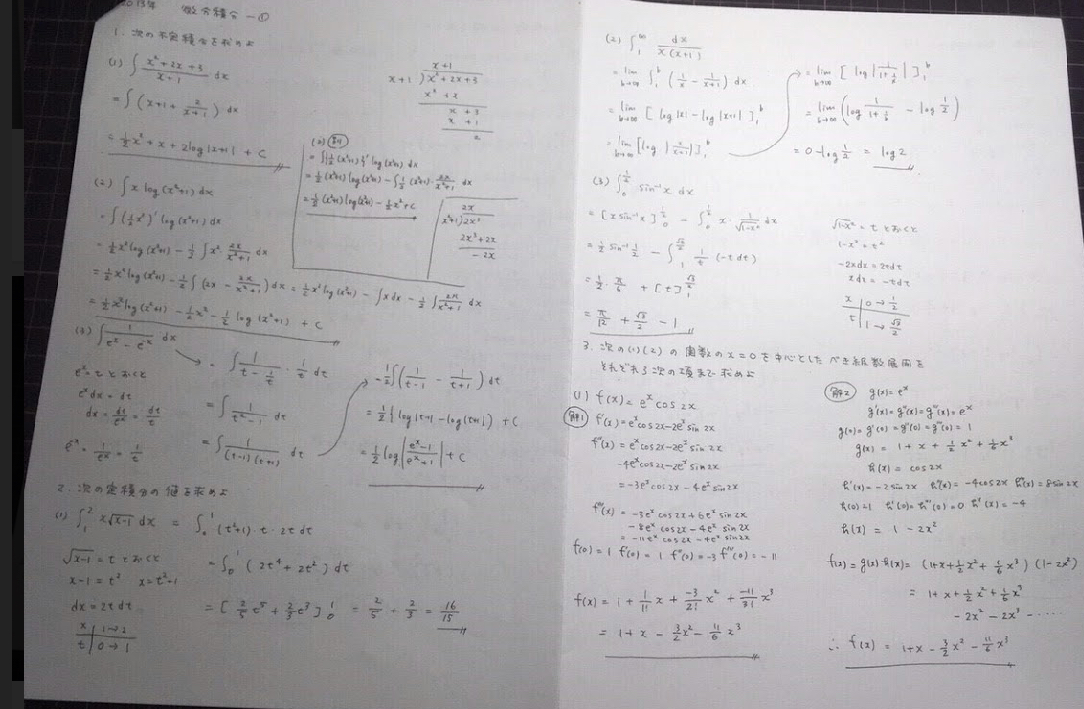 2013年 微分積分-①
1. 次の不定積分を求めよ
(1) ∫ (x²+2x+3)/(x+1) dx
= ∫ (x+1+ 2/(x+1)) dx
= 1/2 x² + x + 2log|x+1| + C
x+1
x+1 ) x²+2x+3
x²+x
x+3
x+1
2
(2) ∫ x log(x²+1) dx
= ∫ (1/2 x²)' log(x²+1) dx
= 1/2 x² log(x²+1) - 1/2 ∫ x² · 2x/(x²+1) dx
= 1/2 x² log(x²+1) - 1/2 ∫ (2x - 2x/(x²+1)) dx = 1/2 x² log(x²+1) - ∫ x dx - 1/2 ∫ 2x/(x²+1) dx
= 1/2 x² log(x²+1) - 1/2 x² - 1/2 log(x²+1) + C
(2) 別
= ∫ {1/2 (x²+1)}' log(x²+1) dx
= 1/2 (x²+1) log(x²+1) - ∫ 1/2 (x²+1) · 2x/(x²+1) dx
= 1/2 (x²+1) log(x²+1) - 1/2 x² + C
2x
x²+1 ) 2x³
2x³+2x
-2x
(3) ∫ 1/(eˣ - e⁻ˣ) dx
eˣ = t とおくと
eˣ dx = dt
dx = dt/eˣ = dt/t
e⁻ˣ = 1/eˣ = 1/t
= ∫ 1/(t - 1/t) · 1/t dt
= ∫ 1/(t²-1) dt
= ∫ 1/((t-1)(t+1)) dt
= 1/2 ∫ (1/(t-1) - 1/(t+1)) dt
= 1/2 {log|t-1| - log|t+1|} + C
= 1/2 log |(eˣ-1)/(eˣ+1)| + C
2. 次の定積分の値を求めよ
(1) ∫₁² x√(x-1) dx = ∫₀¹ (t²+1) · t · 2t dt
√(x-1) = t とおくと
x-1 = t² x = t²+1
dx = 2t dt
x | 1→2
t | 0→1
= ∫₀¹ (2t⁴ + 2t²) dt
= [2/5 t⁵ + 2/3 t³]₀¹ = 2/5 + 2/3 = 16/15
(2) ∫₁^∞ dx/(x(x+1))
= lim b→∞ ∫₁ᵇ (1/x - 1/(x+1)) dx
= lim b→∞ [log|x| - log|x+1|]₁ᵇ
= lim b→∞ [log|x/(x+1)|]₁ᵇ
= lim b→∞ [log|1/(1+1/x)|]₁ᵇ
= lim b→∞ (log 1/(1+1/b) - log 1/2)
= 0 - log 1/2 = log 2
(3) ∫₀^(1/2) sin⁻¹x dx
= [x sin⁻¹x]₀^(1/2) - ∫₀^(1/2) x · 1/√(1-x²) dx
= 1/2 sin⁻¹ 1/2 - ∫₁^(√3/2) 1/t (-t dt)
= 1/2 · π/6 + [t]₁^(√3/2)
= π/12 + √3/2 - 1
√(1-x²) = t とおくと
1-x² = t²
-2xdx = 2tdt
xdx = -tdt
x | 0→1/2
t | 1→√3/2
3. 次の(1)(2)の関数のx=0を中心としたべき級数展開を
それぞれ3次の項まで求めよ
(1) f(x) = eˣ cos 2x
解1 f'(x) = eˣ cos 2x - 2eˣ sin 2x
f''(x) = eˣ cos 2x - 2eˣ sin 2x
-4eˣ cos 2x - 2eˣ sin 2x
= -3eˣ cos 2x - 4eˣ sin 2x
f'''(x) = -3eˣ cos 2x + 6eˣ sin 2x
-8eˣ cos 2x - 4eˣ sin 2x
= -11eˣ cos 2x - 4eˣ sin 2x
f(0) = 1 f'(0) = 1 f''(0) = -3 f'''(0) = -11
f(x) = 1 + 1/1! x + -3/2! x² + -11/3! x³
= 1 + x - 3/2 x² - 11/6 x³
解2 g(x) = eˣ
g'(x) = g''(x) = g'''(x) = eˣ
g(0) = g'(0) = g''(0) = g'''(0) = 1
g(x) = 1 + x + 1/2 x² + 1/6 x³
h(x) = cos 2x
h'(x) = -2sin 2x h''(x) = -4cos 2x h'''(x) = 8sin 2x
h(0) = 1 h'(0) = h'''(0) = 0 h''(x) = -4
h(x) = 1 - 2x²
f(x) = g(x)·h(x) = (1+x+1/2 x² + 1/6 x³)(1-2x²)
= 1 + x + 1/2 x² + 1/6 x³
- 2x² - 2x³ - ·····
∴ f(x) = 1 + x - 3/2 x² - 11/6 x³